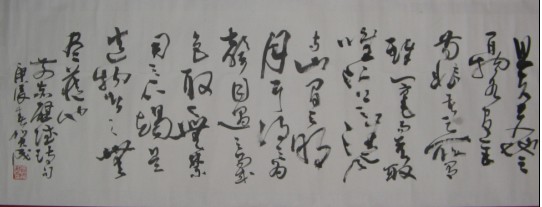 且夫天地之
間物各有主
苟非吾之所有
雖一毫而莫取
惟江上之清風
與山間之明
月耳得之而為
聲目遇之而成
色取之無禁
用之不竭是
造物者之無
盡藏也
赤壁賦
庚辰